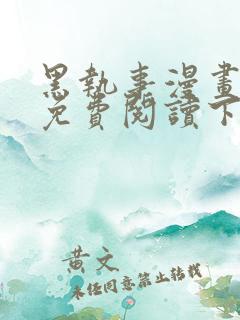 黑執事漫畫
免費閱讀下
黃文
未任同意禁止轉載